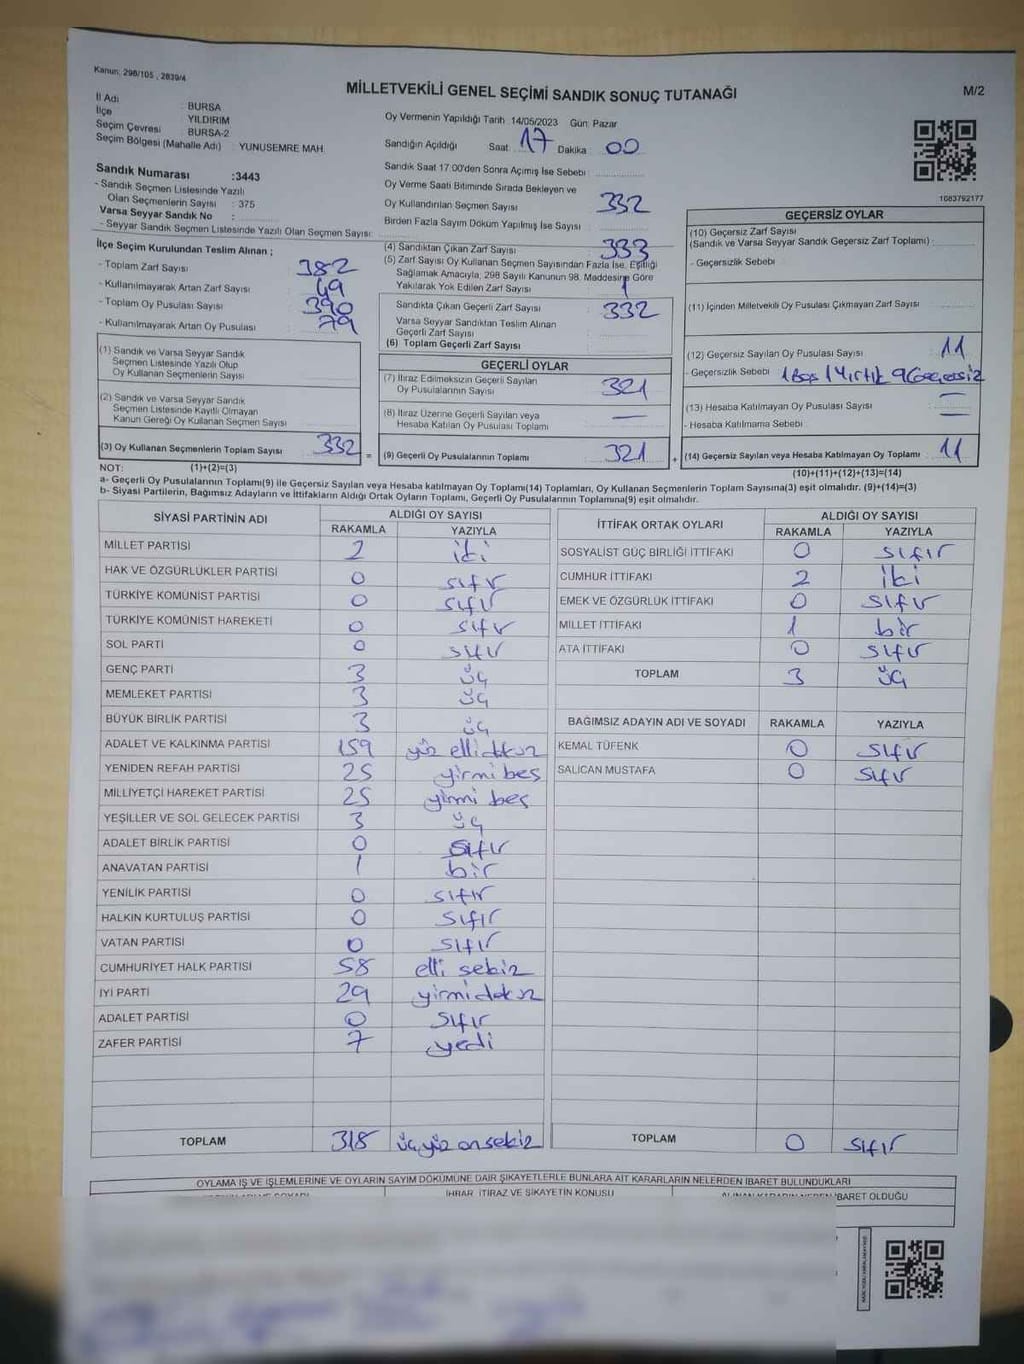 Kanun: 298/105 , 2839/4
MİLLETVEKİLİ GENEL SEÇİMİ SANDIK SONUÇ TUTANAĞI
M/2
İl Adı : BURSA
İlçe : YILDIRIM
Seçim Çevresi : BURSA-2
Seçim Bölgesi (Mahalle Adı) : YUNUSEMRE MAH.
Oy Vermenin Yapıldığı Tarih :14/05/2023 Gün: Pazar
Sandığın Açıldığı Saat : 17 Dakika : 00
Sandık Saat 17:00'den Sonra Açımış İse Sebebi :
Oy Verme Saati Bitiminde Sırada Bekleyen ve
Oy Kullandırılan Seçmen Sayısı : 332
Birden Fazla Sayım Döküm Yapılmış İse Sayısı :
Sandık Numarası :3443
- Sandık Seçmen Listesinde Yazılı
Olan Seçmenlerin Sayısı : 375
Varsa Seyyar Sandık No :
- Seyyar Sandık Seçmen Listesinde Yazılı Olan Seçmen Sayısı:
1083792177
İlçe Seçim Kurulundan Teslim Alınan ;
- Toplam Zarf Sayısı : 382
- Kullanılmayarak Artan Zarf Sayısı : 49
- Toplam Oy Pusulası Sayısı : 390
- Kullanılmayarak Artan Oy Pusulası : 79
(1) Sandık ve Varsa Seyyar Sandık
Seçmen Listesinde Yazılı Olup
Oy Kullanan Seçmenlerin Sayısı :
(2) Sandık ve Varsa Seyyar Sandık
Seçmen Listesinde Kayıtlı Olmayan
Kanun Gereği Oy Kullanan Seçmen Sayısı :
(3) Oy Kullanan Seçmenlerin Toplam Sayısı : 332 =
(4) Sandıktan Çıkan Zarf Sayısı : 333
(5) Zarf Sayısı Oy Kullanan Seçmen Sayısından Fazla İse, Eşitliği
Sağlamak Amacıyla, 298 Sayılı Kanunun 98. Maddesine Göre
Yakılarak Yok Edilen Zarf Sayısı : 1
Sandıkta Çıkan Geçerli Zarf Sayısı : 332
Varsa Seyyar Sandıktan Teslim Alınan
Geçerli Zarf Sayısı :
(6) Toplam Geçerli Zarf Sayısı :
GEÇERLİ OYLAR
(7) İtiraz Edilmeksizin Geçerli Sayılan
Oy Pusulalarının Sayısı : 321
(8) İtiraz Üzerine Geçerli Sayılan veya
Hesaba Katılan Oy Pusulası Toplamı : —
(9) Geçerli Oy Pusulalarının Toplamı : 321 +
GEÇERSİZ OYLAR
(10) Geçersiz Zarf Sayısı
(Sandık ve Varsa Seyyar Sandık Geçersiz Zarf Toplamı) :
- Geçersizlik Sebebi :
(11) İçinden Milletvekili Oy Pusulası Çıkmayan Zarf Sayısı :
(12) Geçersiz Sayılan Oy Pusulası Sayısı : 11
- Geçersizlik Sebebi : 1Boş 1Yırtık 9Geçersiz
(13) Hesaba Katılmayan Oy Pusulası Sayısı : —
- Hesaba Katılmama Sebebi : —
(14) Geçersiz Sayılan veya Hesaba Katılmayan Oy Toplamı : 11
NOT: (1)+(2)=(3)
(10)+(11)+(12)+(13)=(14)
a- Geçerli Oy Pusulalarının Toplamı(9) ile Geçersiz Sayılan veya Hesaba katılmayan Oy Toplamı(14) Toplamları, Oy Kullanan Seçmenlerin Toplam Sayısına(3) eşit olmalıdır. (9)+(14)=(3)
b- Siyasi Partilerin, Bağımsız Adayların ve İttifakların Aldığı Ortak Oyların Toplamı, Geçerli Oy Pusulalarının Toplamına(9) eşit olmalıdır.
SİYASİ PARTİNİN ADI ALDIĞI OY SAYISI
RAKAMLA YAZIYLA
MİLLET PARTİSİ 2 iki
HAK VE ÖZGÜRLÜKLER PARTİSİ 0 sıfır
TÜRKİYE KOMÜNİST PARTİSİ 0 sıfır
TÜRKİYE KOMÜNİST HAREKETİ 0 sıfır
SOL PARTİ 0 sıfır
GENÇ PARTİ 3 üç
MEMLEKET PARTİSİ 3 üç
BÜYÜK BİRLİK PARTİSİ 3 üç
ADALET VE KALKINMA PARTİSİ 159 yüz elli dokuz
YENİDEN REFAH PARTİSİ 25 yirmi beş
MİLLİYETÇİ HAREKET PARTİSİ 25 yirmi beş
YEŞİLLER VE SOL GELECEK PARTİSİ 3 üç
ADALET BİRLİK PARTİSİ 0 sıfır
ANAVATAN PARTİSİ 1 bir
YENİLİK PARTİSİ 0 sıfır
HALKIN KURTULUŞ PARTİSİ 0 sıfır
VATAN PARTİSİ 0 sıfır
CUMHURİYET HALK PARTİSİ 58 elli sekiz
İYİ PARTİ 29 yirmi dokuz
ADALET PARTİSİ 0 sıfır
ZAFER PARTİSİ 7 yedi
TOPLAM 318 üç yüz on sekiz
İTTİFAK ORTAK OYLARI ALDIĞI OY SAYISI
RAKAMLA YAZIYLA
SOSYALİST GÜÇ BİRLİĞİ İTTİFAKI 0 sıfır
CUMHUR İTTİFAKI 2 iki
EMEK VE ÖZGÜRLÜK İTTİFAKI 0 sıfır
MİLLET İTTİFAKI 1 bir
ATA İTTİFAKI 0 sıfır
TOPLAM 3 üç
BAĞIMSIZ ADAYIN ADI VE SOYADI RAKAMLA YAZIYLA
KEMAL TÜFENK 0 sıfır
SALİCAN MUSTAFA 0 sıfır
TOPLAM 0 sıfır
OYLAMA İŞ VE İŞLEMLERİNE VE OYLARIN SAYIM DÖKÜMÜNE DAİR ŞİKAYETLERLE BUNLARA AİT KARARLARIN NELERDEN İBARET BULUNDUKLARI
İHBAR, İTİRAZ VE ŞİKAYETİN KONUSU
ALINAN KARARIN NEDEN İBARET OLDUĞU